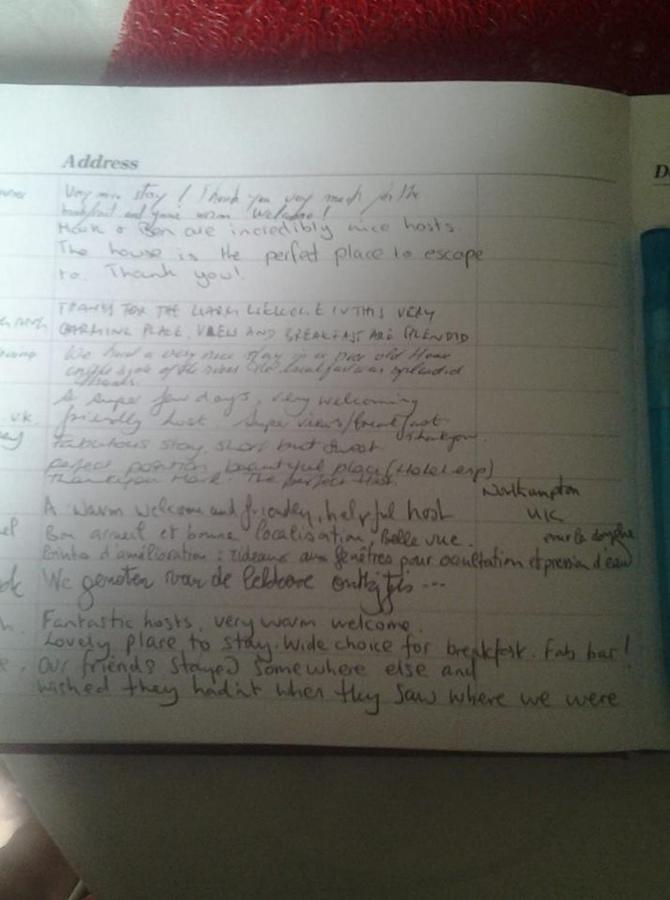 Address
D
Very nice stay! Thank you very much for the
breakfast and your warm welcome!
Mark & Ben are incredibly nice hosts.
The house is the perfect place to escape
to. Thank you!
THANKS FOR THE WARM WELCOME IN THIS VERY
CHARMING PLACE. VIEW AND BREAKFAST ARE SPLENDID
We had a very nice stay in a old House
on the side of the river. The breakfast was splendid
Thanks.
A super few days, very welcoming
friendly host super views/breakfast
u.k. Thankyou.
Fabulous stay, short but sweet
perfect position, beautiful place (Hotel esp)
Thankyou Mark. The perfect Host.
Northampton
UK
A warm welcome and friendly, helpful host
Bon accueil et bonne localisation, Belle vue. sur la
Points d'amélioration : rideaux aux fenêtres pour occultation et pression d'eau
We genoten van de lekkere ontbijtjes ...
Fantastic hosts, very warm welcome.
Lovely place to stay. Wide choice for breakfast. Fab bar!
Our friends stayed somewhere else and
wished they hadn't when they saw where we were